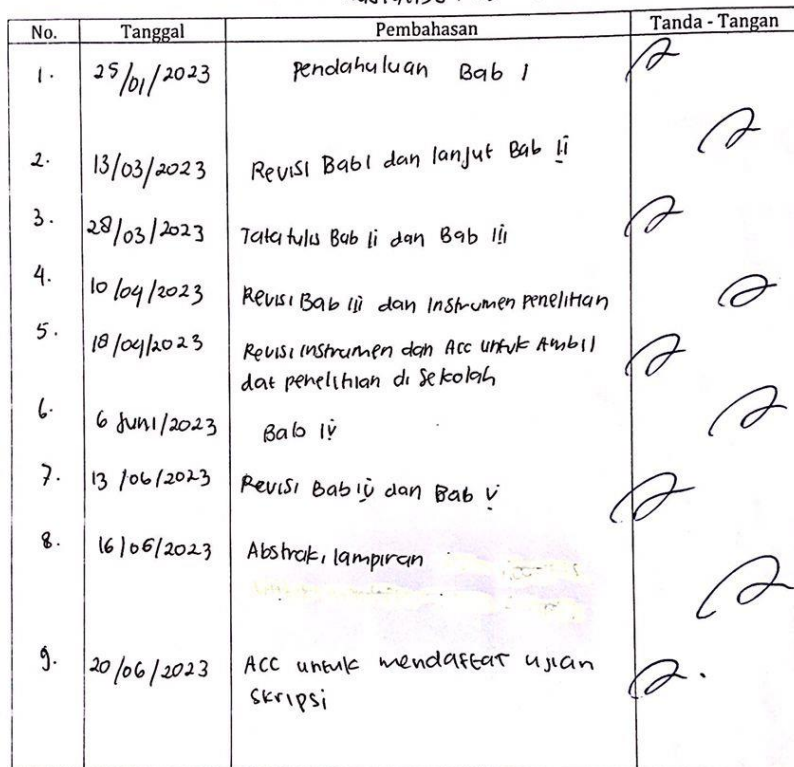 No. Tanggal Pembahasan Tanda - Tangan
1. 25/01/2023 Pendahuluan Bab I
2. 13/03/2023 Revisi Bab I dan lanjut Bab II
3. 28/03/2023 Tata tulis Bab II dan Bab III
4. 10/04/2023 Revisi Bab III dan Instrumen penelitian
5. 18/04/2023 Revisi instrumen dan Acc untuk Ambil
dat penelitian di Sekolah
6. 6 Juni/2023 Bab IV
7. 13/06/2023 Revisi Bab IV dan Bab V
8. 16/06/2023 Abstrak, lampiran
9. 20/06/2023 ACC untuk mendaftar ujian
skripsi